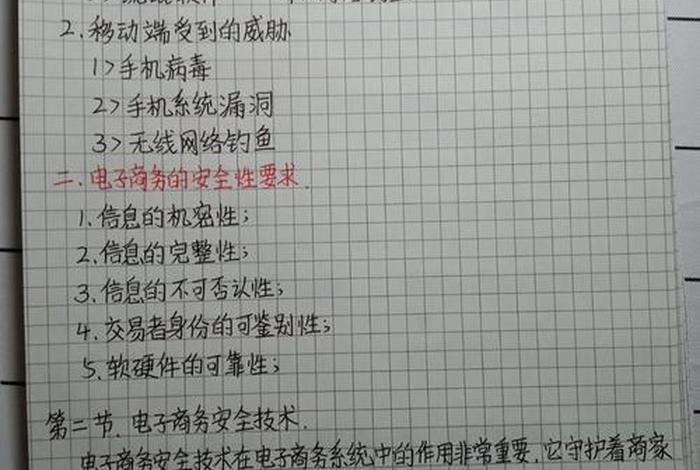 2.移动端受到的威胁
1>手机病毒
2>手机系统漏洞
3>无线网络钓鱼
二.电子商务的安全性要求.
1.信息的机密性;
2.信息的完整性;
3.信息的不可否认性;
4.交易者身份的可鉴别性;
5.软硬件的可靠性;
第二节.电子商务安全技术.
电子商务安全技术在电子商务系统中的作用非常重要.它守护着商家